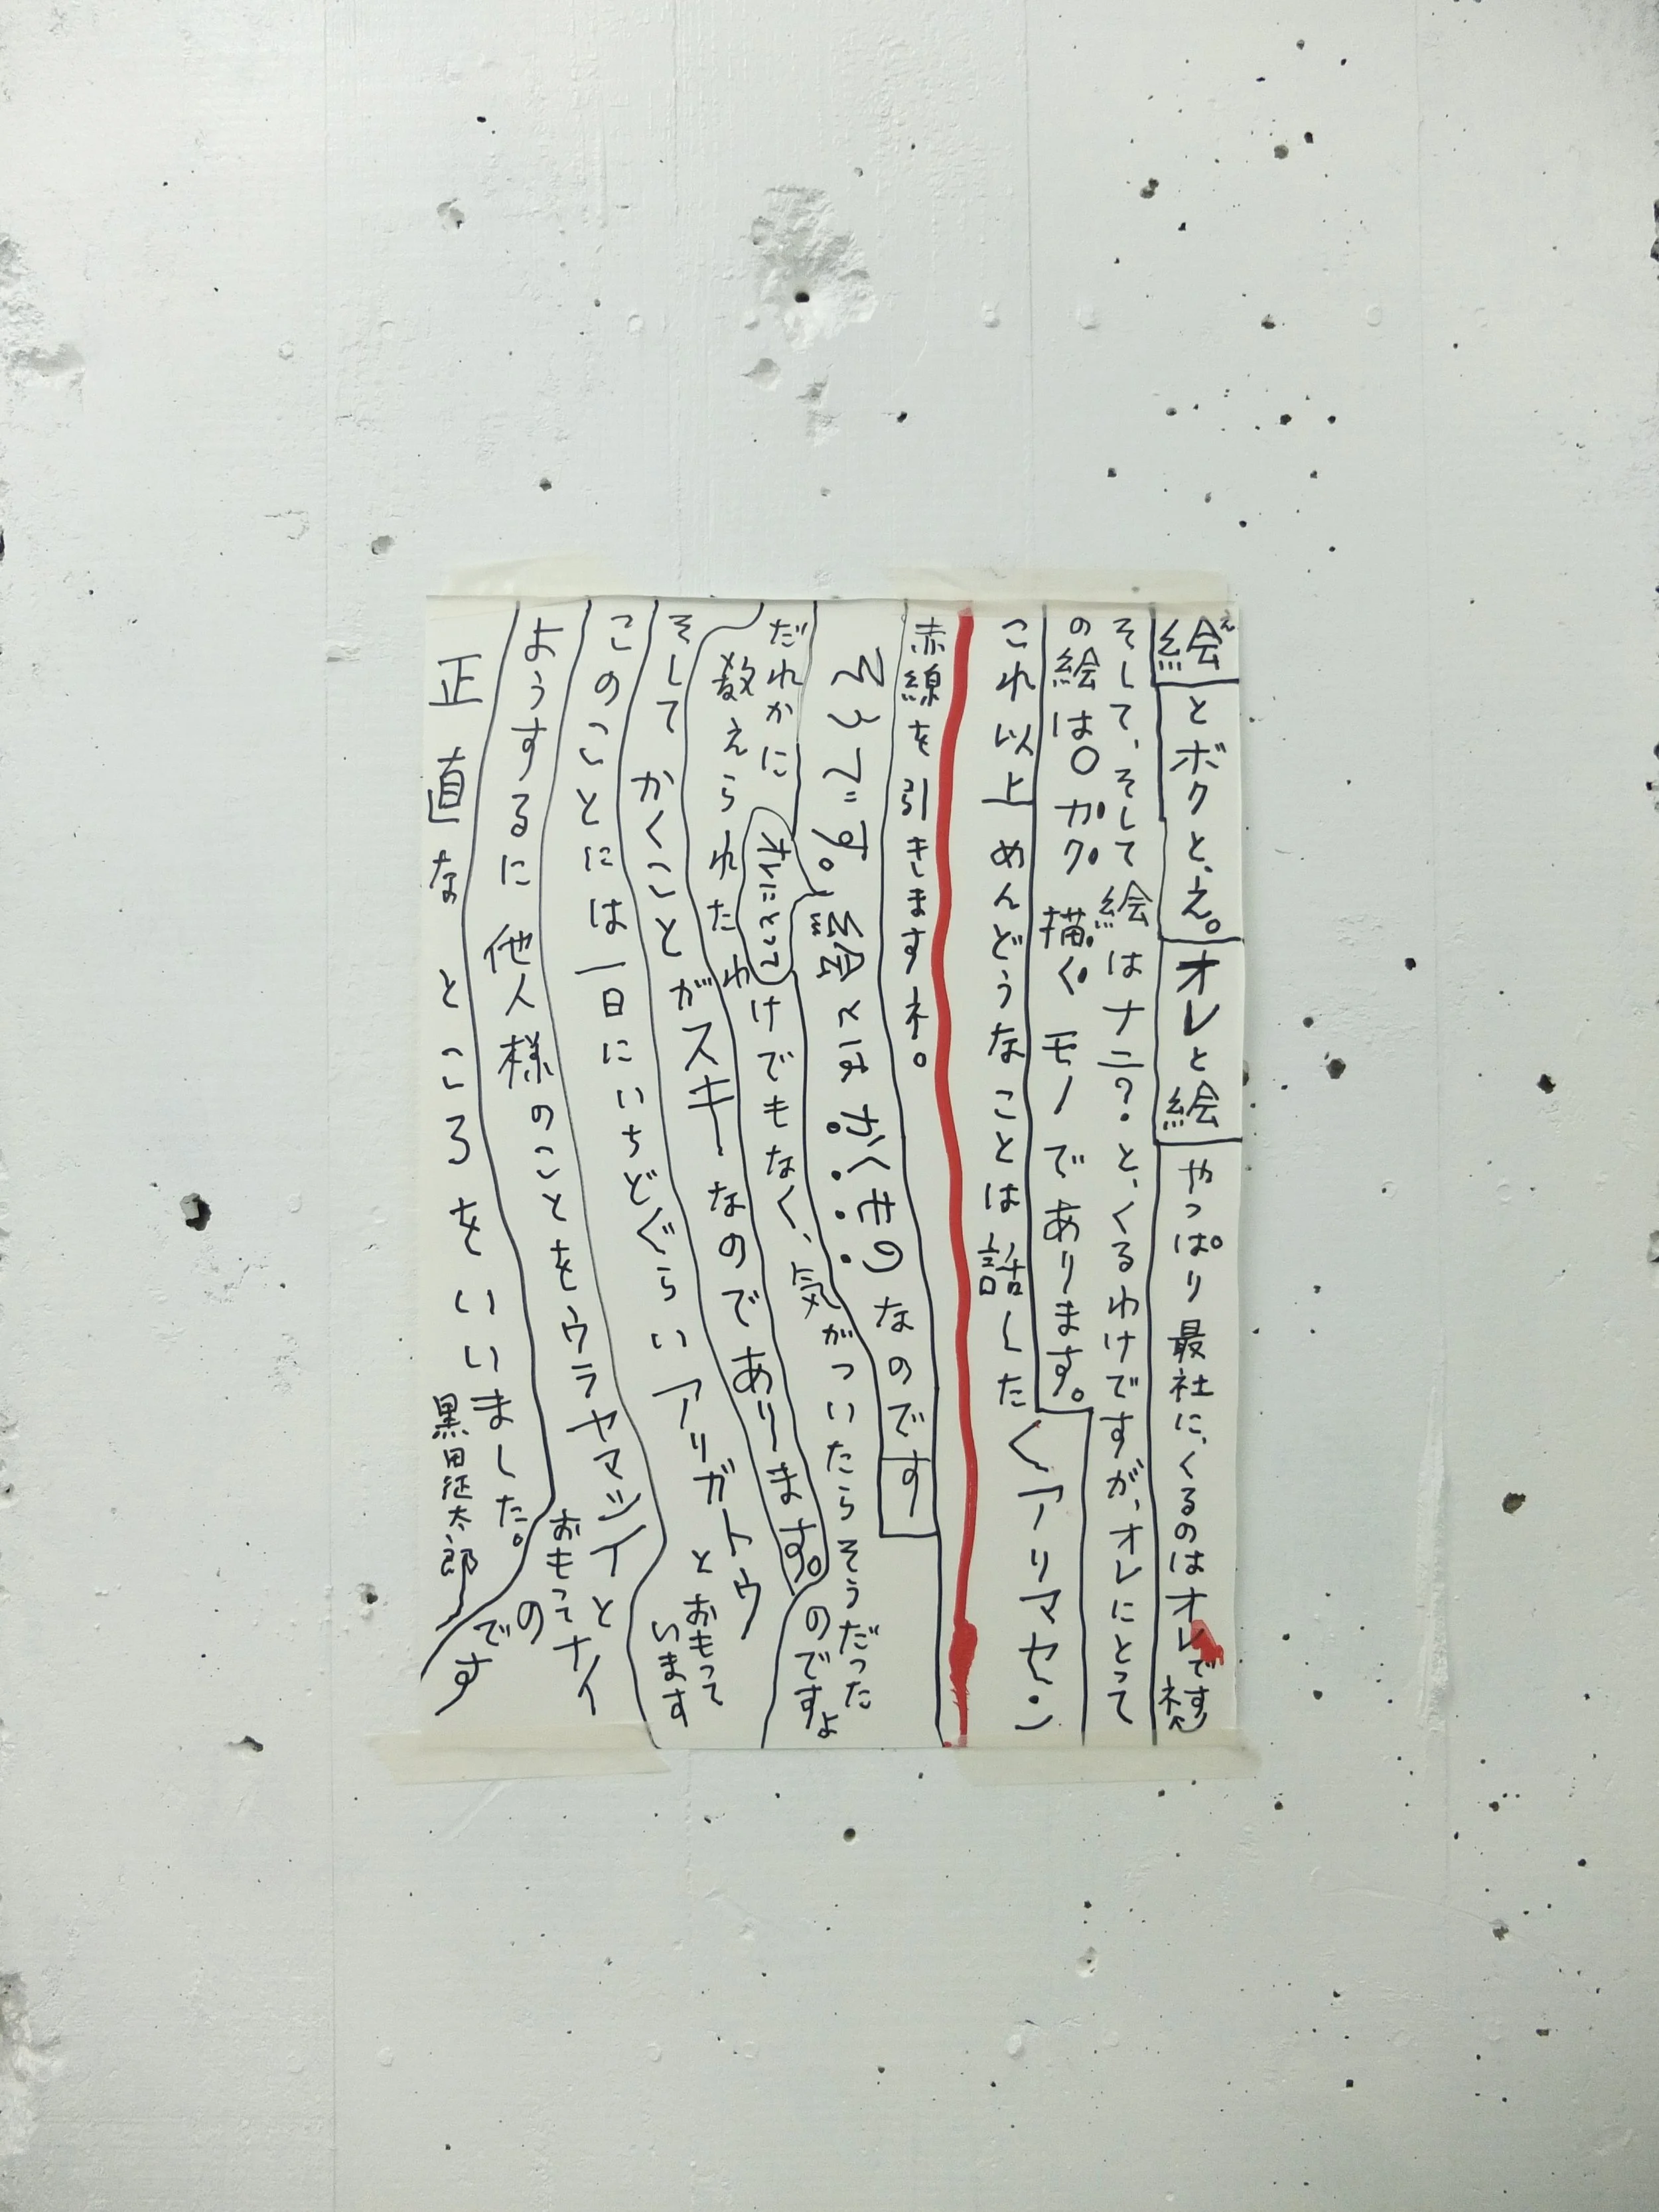 絵とボクと、え。オレと絵 やっぱり最社に、くるのはオレですネ
そして、そして絵はナニ?と、くるわけですが、オレにとって
の絵は〇カク描くモノであります。
これ以上めんどうなことは話したくアリマセン
赤線を引きますネ。
です。絵とは かくもの なのです
だれかに オレにとって
教えられたわけでもなく、気がついたらそうだった
のですよ
そしてかくことがスキーなのであります。
このことには一日にいちどぐらいアリガトウとおもって
います
ようするに他人様のことをウラヤマシイと
おもってナイ
のです
正直なところをいいました。
黒田征太郎